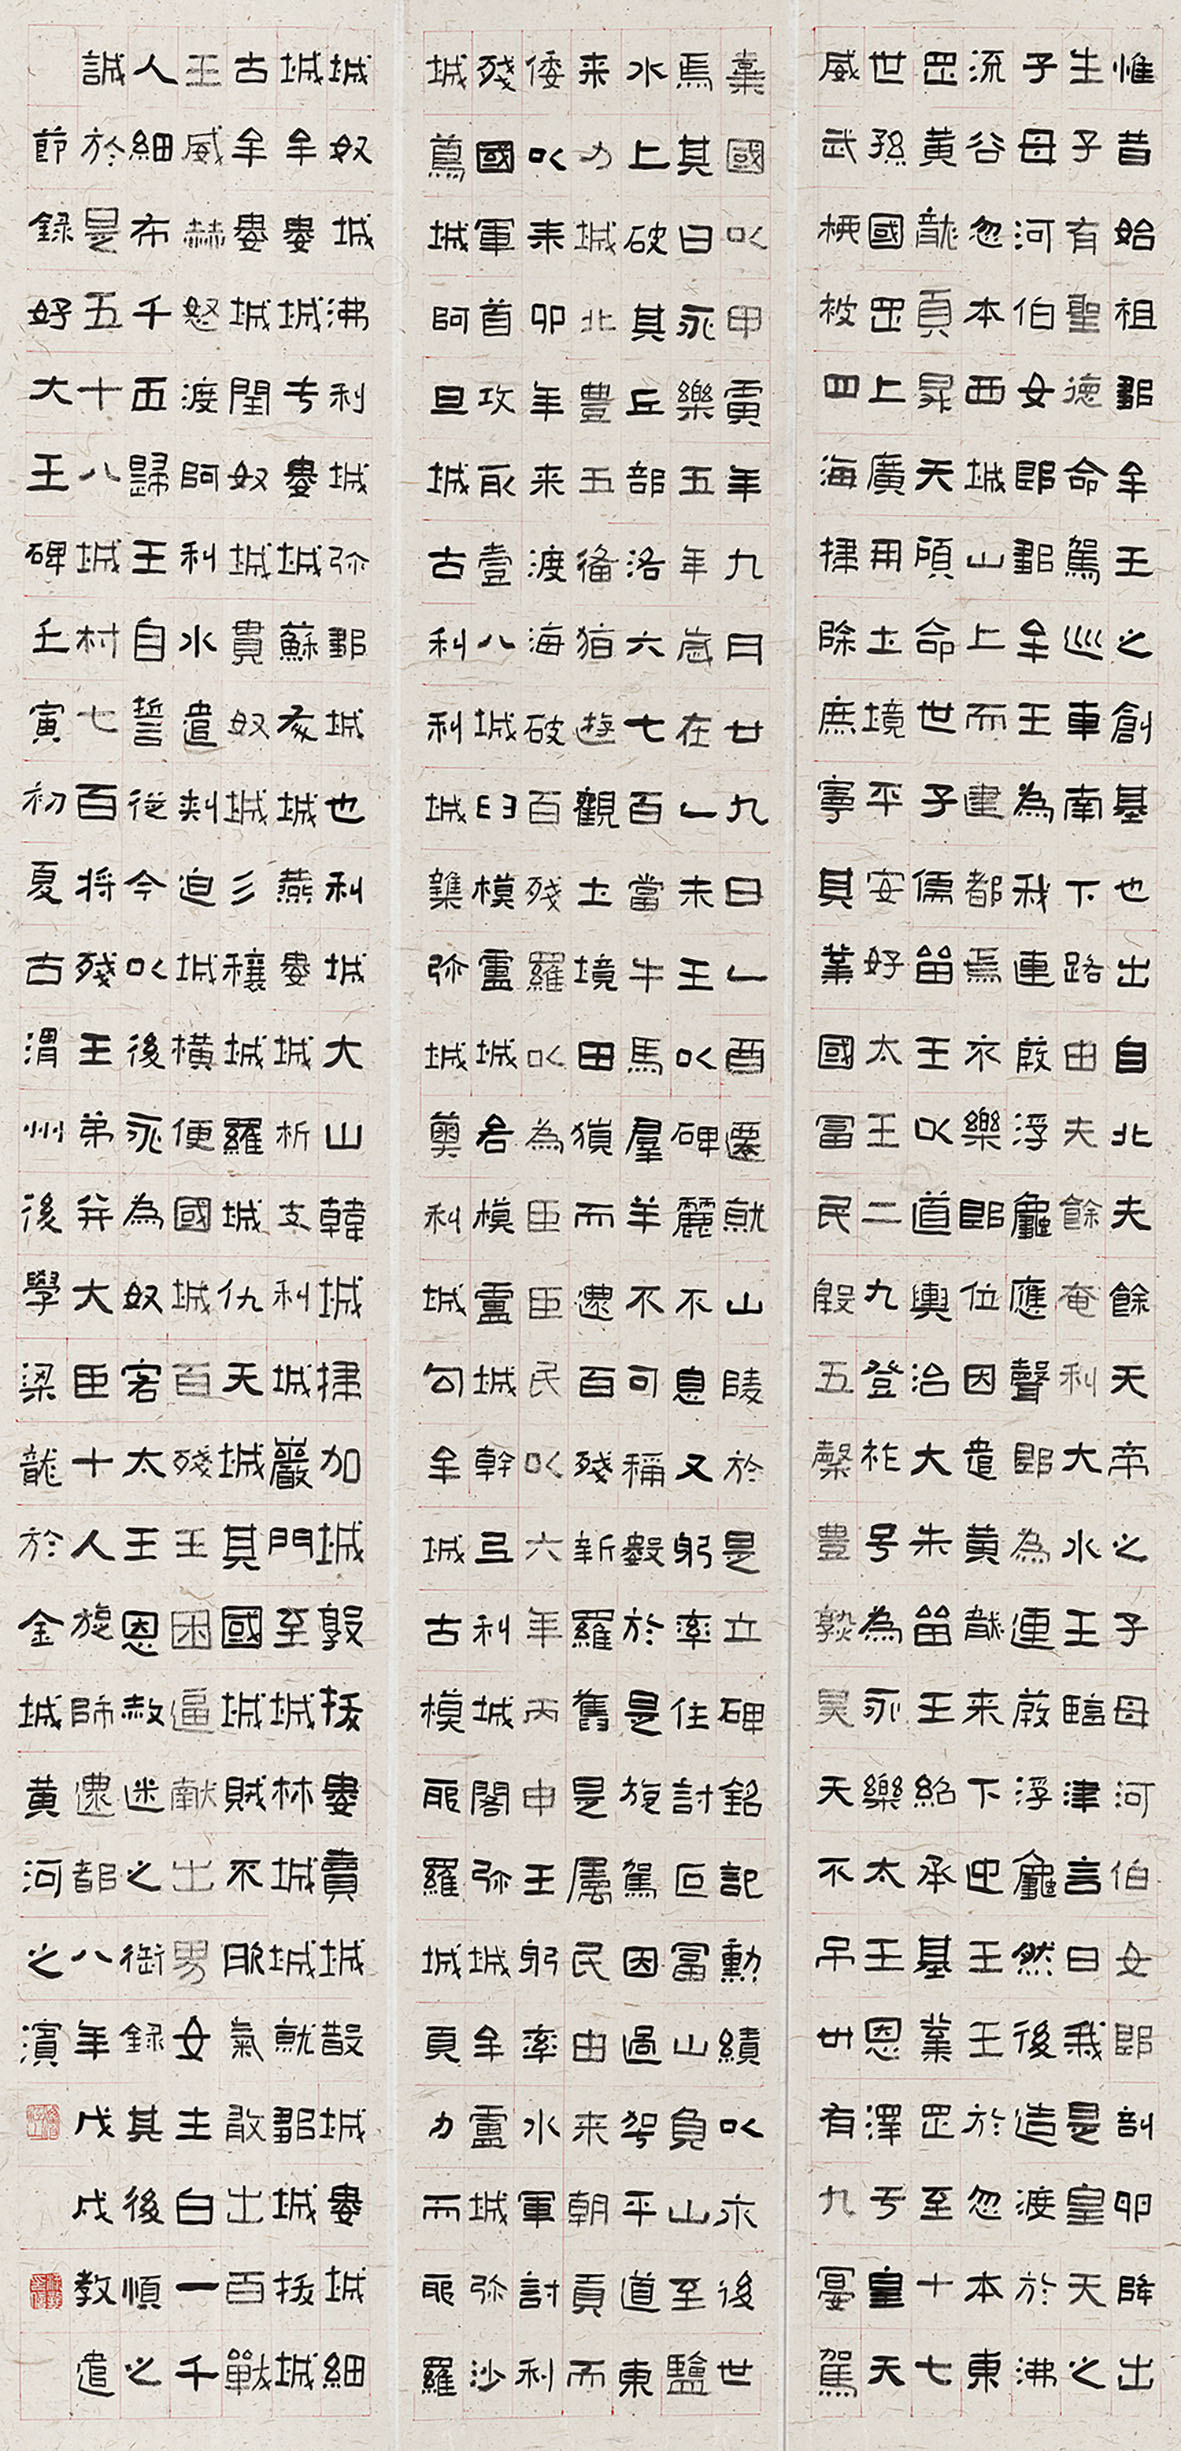 惟昔始祖鄒牟王之創基也出自北夫餘天帝之子母河伯女郎剖卵降出
生子有聖德命駕巡車南下路由夫餘奄利大水王臨津言曰我是皇天之
子母河伯女郎鄒牟王為我連葭浮龜應聲即為連葭浮龜然後造渡於沸
流谷忽本西城山上而建都焉不樂即位因遣黃龍来下迎王王於忽本東
罡黃龍頁昇天顧命世子儒留王以道輿治大朱留王紹承基業罡至十七
世孫國罡上廣開土境平安好太王二九登祚号為永樂太王恩澤于皇天
威武柳被四海掃除庶寧其業國富民殷五穀豐熟昊天不弔卅有九宴駕
棄國以甲寅年九月廿九日乙酉遷就山陵於是立碑銘記勳績以示後世
焉其曰永樂五年歲在乙未王以碑麗不息又躬率住討叵富山負山至鹽
水上破其丘部洛六七百當牛馬羣羊不可稱數於是旋駕因過平道東
来力城北豐五備猶遊觀土境田獵而還百殘新羅舊是屬民由来朝貢而
倭以耒卯年来渡海破百殘羅以為臣臣民以六年丙申王躬率水軍討利
殘國軍首攻取壹八城臼模盧城若模盧城幹弖利城閣弥城牟盧城弥沙
城蔦城阿旦城古利利城雜弥城奧利城勾牟城古模耶羅城頁力而耶羅
城奴城沸利城弥鄒城也利城大山韓城掃加城敦拔婁賣城散城婁城細
城牟婁城于婁城蘇灰城燕婁城析支利城巖門至城林城城就鄒城拔城
古牟婁城閏奴城貫奴城彡穰城羅城仇天城其國城賊不服氣敢出百戰
王威赫怒渡阿利水遣刺迫城橫便國城百殘王困逼獻出男女主白一千
人細布千五歸王自誓從今以後永為奴客太王恩赦迷之御錄其後順之
誠於是五十八城村七百將殘王弟并大臣十人旋師還都八年戊戌教遣
節錄好大王碑壬寅初夏古渭州後學梁龍於金城黃河之濱